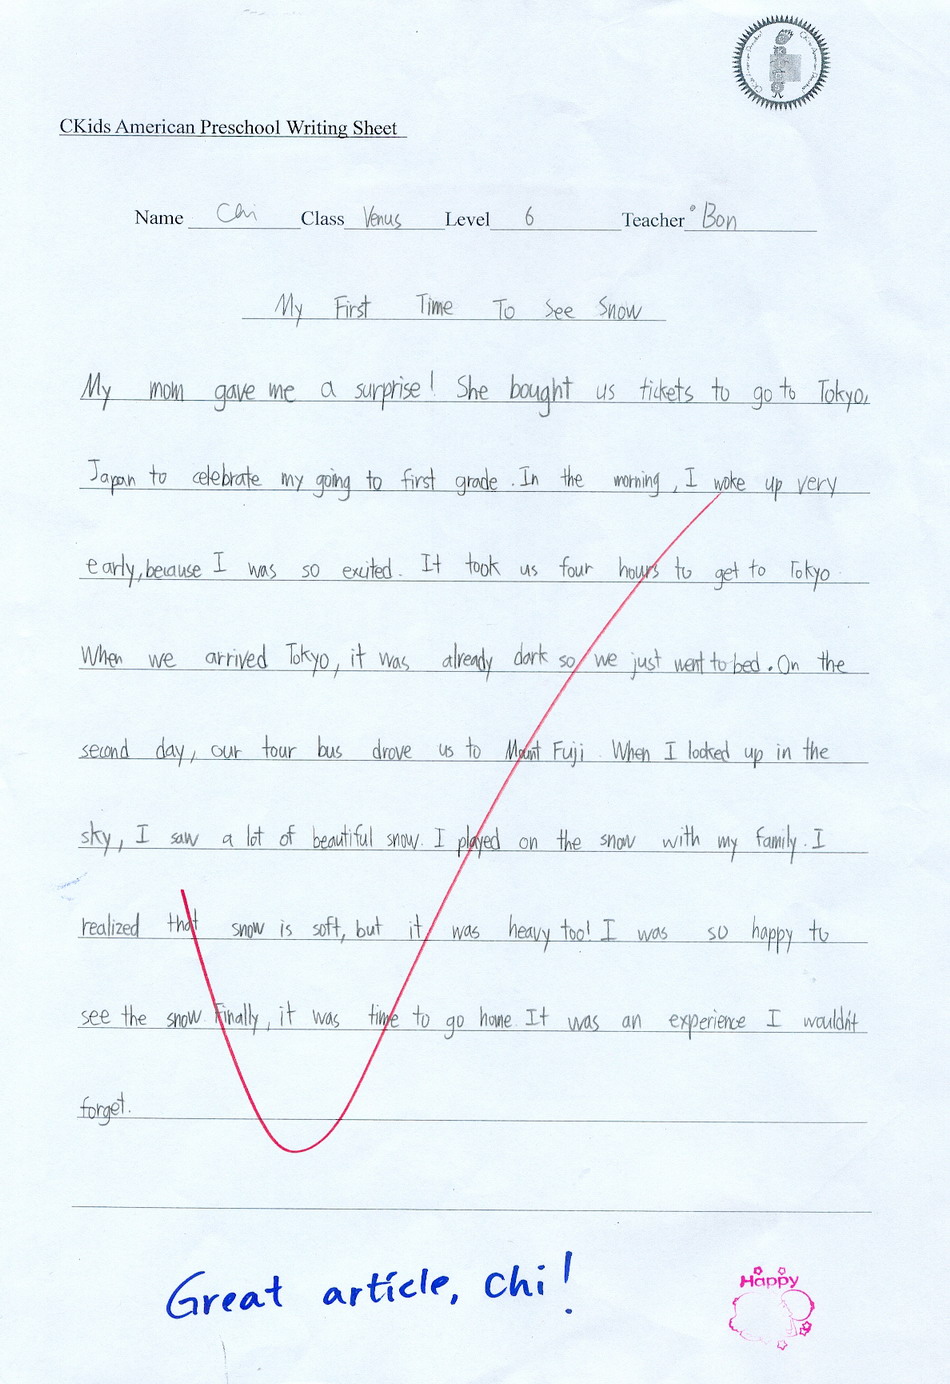 CKids American Preschool Writing Sheet
Name Chi Class Venus Level 6 Teacher Bon
My First Time To See Snow
My mom gave me a surprise! She bought us tickets to go to Tokyo,
Japan to celebrate my going to first grade. In the morning, I woke up very
early, because I was so excited. It took us four hours to get to Tokyo.
When we arrived Tokyo, it was already dark so we just went to bed. On the
second day, our tour bus drove us to Mount Fuji. When I looked up in the
sky, I saw a lot of beautiful snow. I played on the snow with my family. I
realized that snow is soft, but it was heavy too! I was so happy to
see the snow. Finally, it was time to go home. It was an experience I wouldn't
forget.
Great article, Chi!
Happy